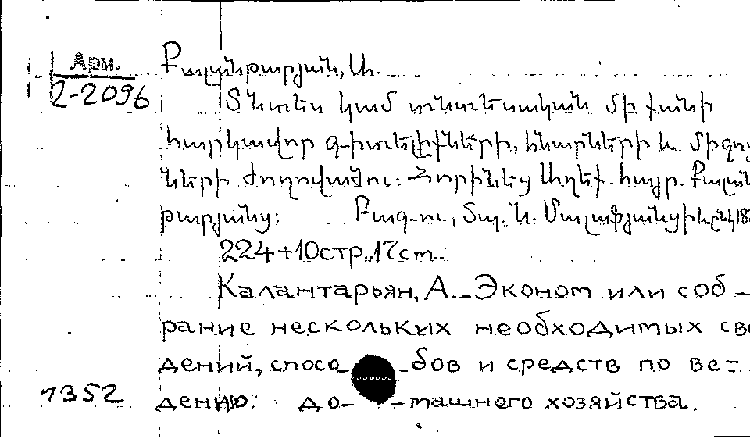 Арм.
2-2096
Քալանթարյան, Ա.
Տնտես կամ տնտեսական մի քանի
հարկավոր գիտելիքների, հնարների և միջոց
ների ժողովածու: Հորինեց Աղեք. հայր. Քալան
թարյանց: Բագու, Տպ. Ն.
224+10стр.,17см.
Калантарьян, А.-Эконом или соб-
рание нескольких необходимых све
дений, спосо- -бов и средств по ве-
1352 дению: до- -машнего хозяйства.